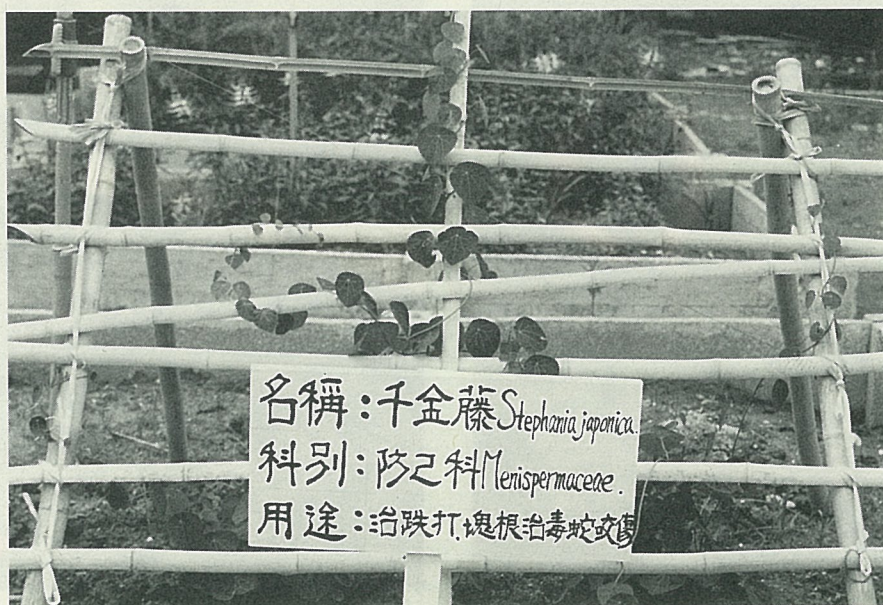 名稱：千金藤 Stephania japonica.
科別：防己科 Menispermaceae.
用途：治跌打.塊根治毒蛇咬傷